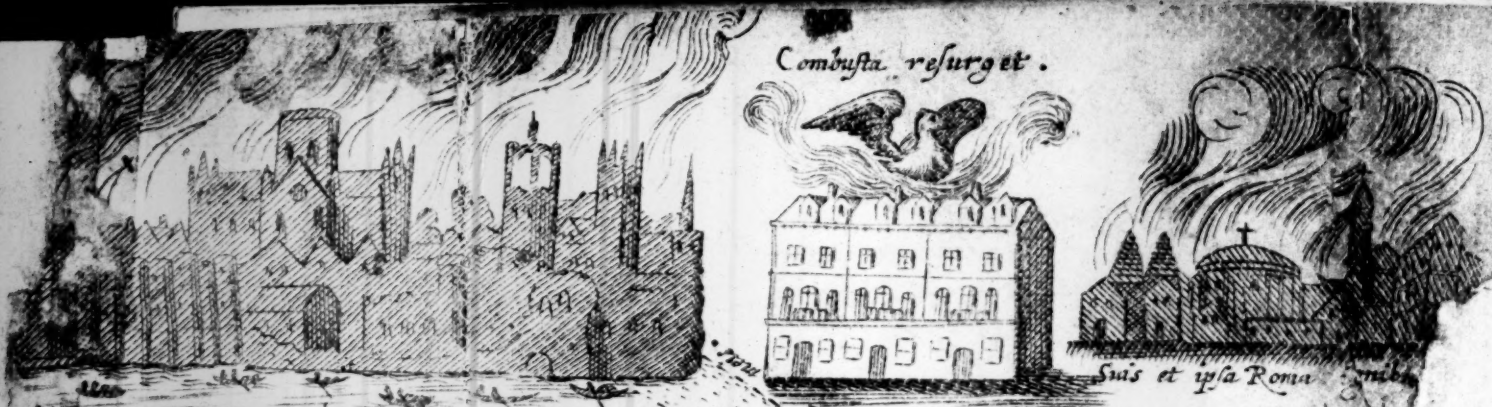 Combusta resurget.
Suis et ipsa Roma